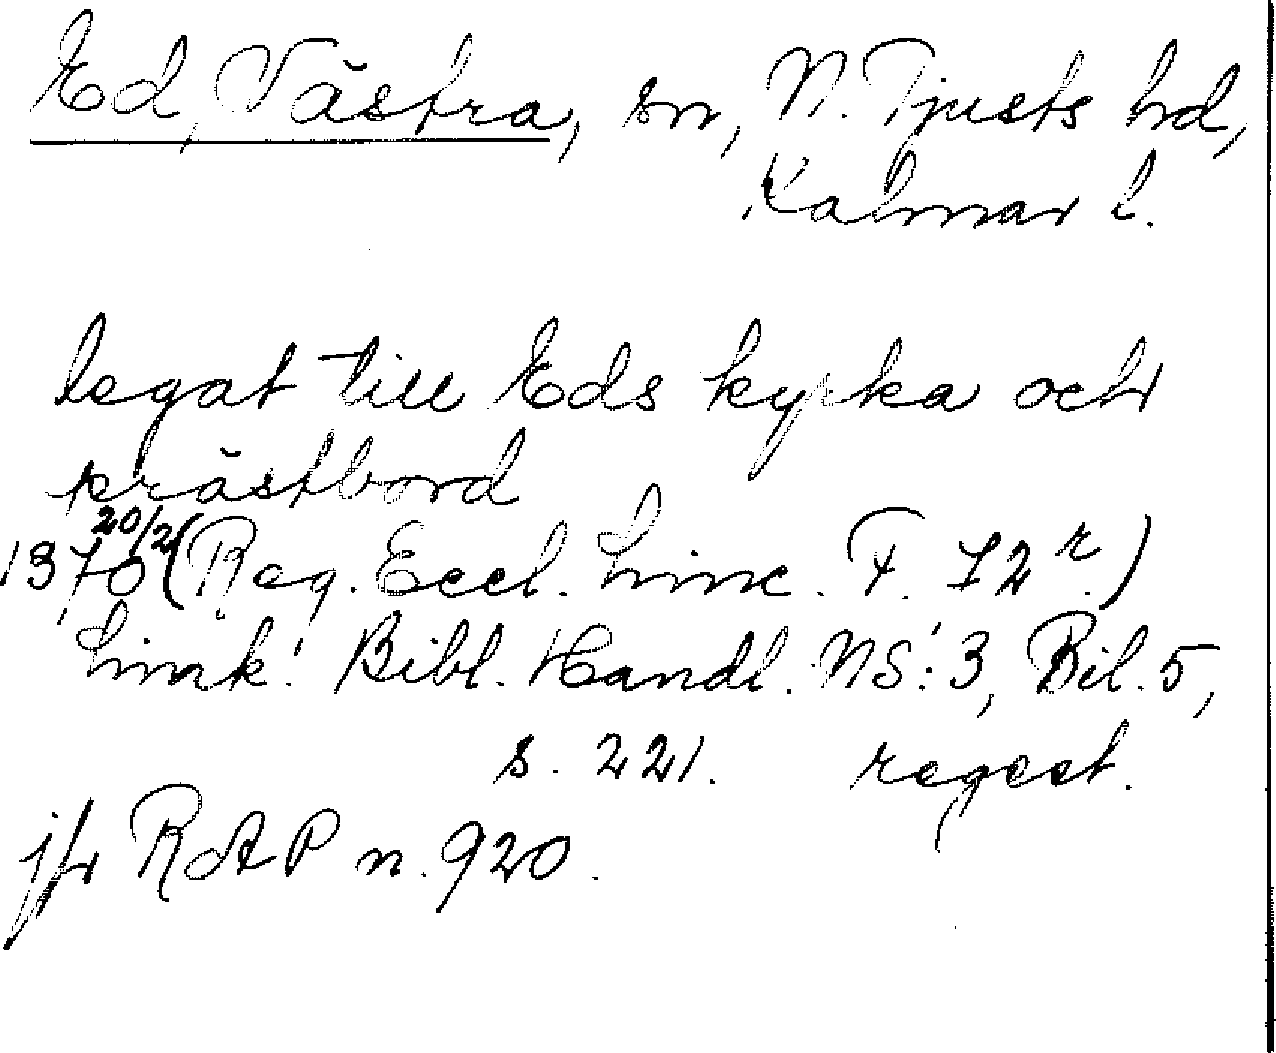 Ed, Västra, sn, N. Tjusts hd,
Kalmar l.
legat till Eds kyrka och
prästbord
1370 20/2 (Reg. Eccl. Linc. F. 72 r.)
Link. Bibl. Handl. NS: 3, Bil. 5,
s. 221. regest.
jfr RAP n. 920.